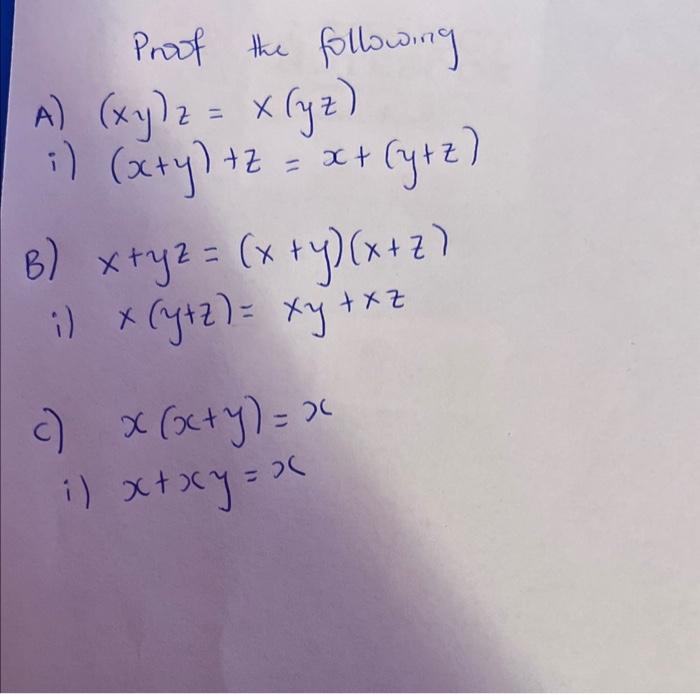 Proof the following
A) (xy)z = x(yz)
i) (x+y)+z = x+(y+z)
B) x+yz = (x+y)(x+z)
i) x(y+z) = xy+xz
c) x(x+y) = x
i) x+xy = x